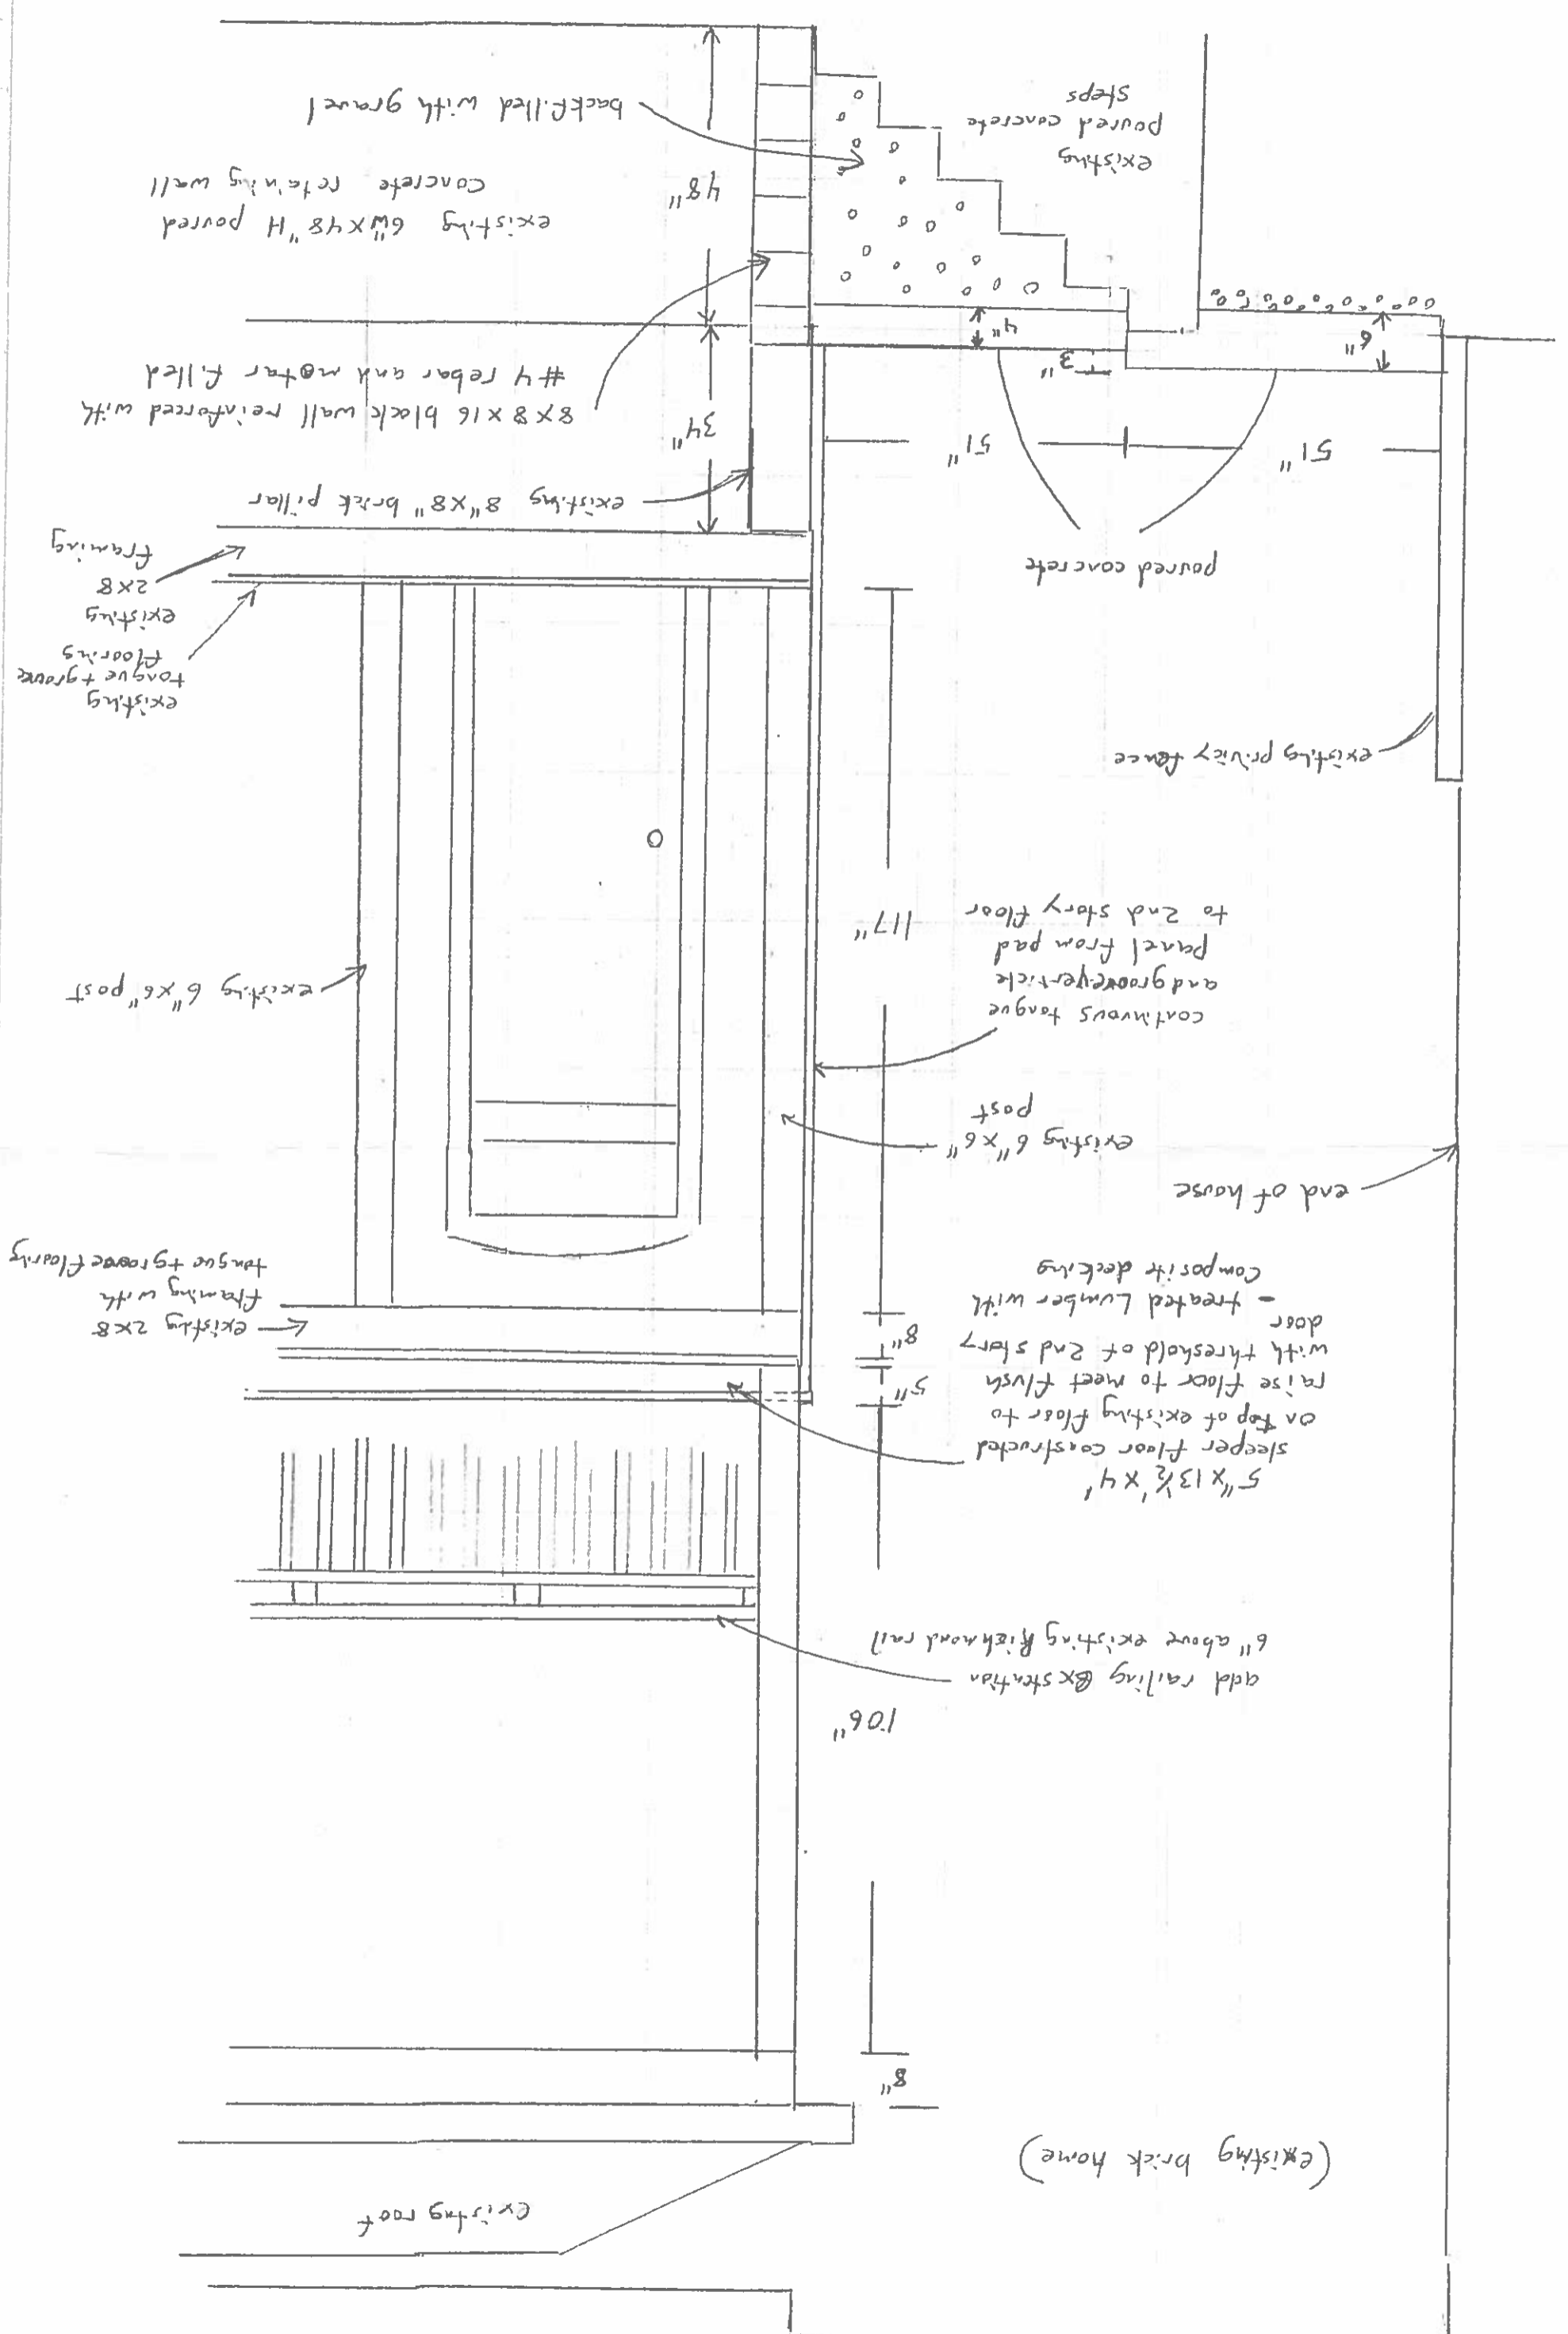 existing roof
(existing brick home)
8"
106"
add railing Exstention
6" above existing Richmond rail
5"x13½'x4'
sleeper floor constructed
on top of existing floor to
raise floor to meet flush
with threshold of 2nd story
door
- treated Lumber with
Composit decking
5"
8"
existing 2x8
framing with
tongue + groove flooring
end of house
existing 6"x6"
post
continuous tongue
and groove verticle
panel from pad
to 2nd story floor
117"
existing 6"x6" post
existing privicy fence
existing
tongue + groove
flooring
existing
2x8
framing
poured concrete
existing 8"x8" brick pillar
51"
51"
34"
8x8x16 block wall reinforced with
#4 rebar and motar filled
6"
3"
4"
existing 6"W x48"H poured
concrete retaining wall
48"
existing
poured concrete
steps
backfilled with gravel